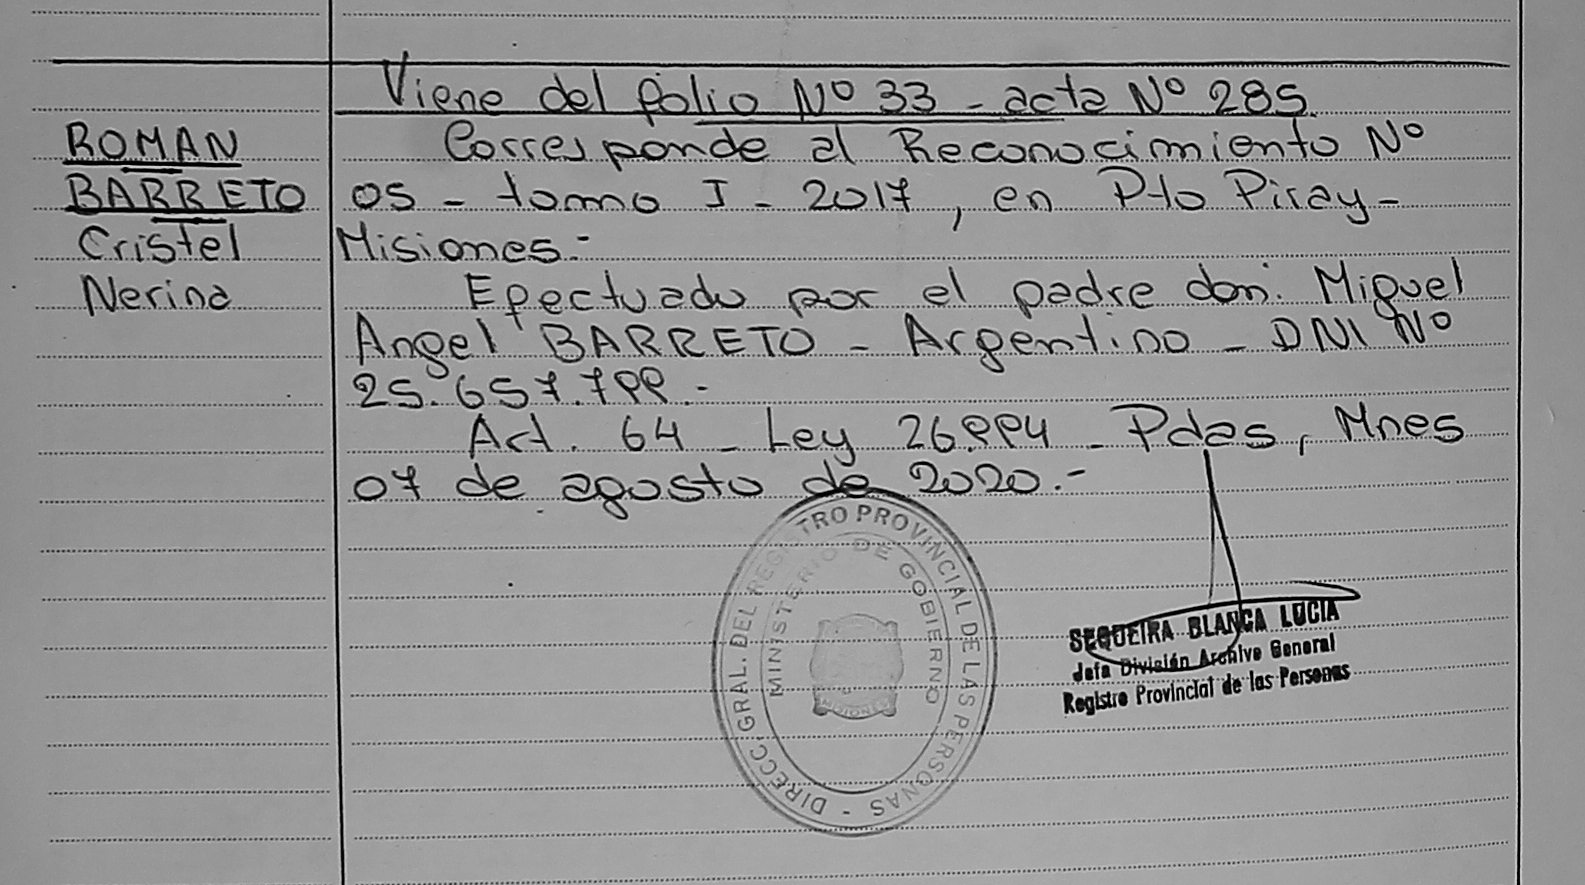 Viene del folio Nº 33 - acta Nº 285.
ROMAN
BARRETO
Cristel
Nerina
Corresponde al Reconocimiento Nº
05 - tomo I - 2017, en Pto Piray -
Misiones.-
Efectuado por el padre don: Miguel
Angel BARRETO - Argentino - DNI Nº
25.657.799.-
Art. 64 - Ley 26.994 - Pdas, Mnes
07 de agosto de 2020.-
DIRECC. GRAL. DEL REGISTRO PROVINCIAL DE LAS PERSONAS -
MINISTERIO DE GOBIERNO
SEQUEIRA BLANCA LUCIA
Jefa División Archivo General
Registro Provincial de las Personas